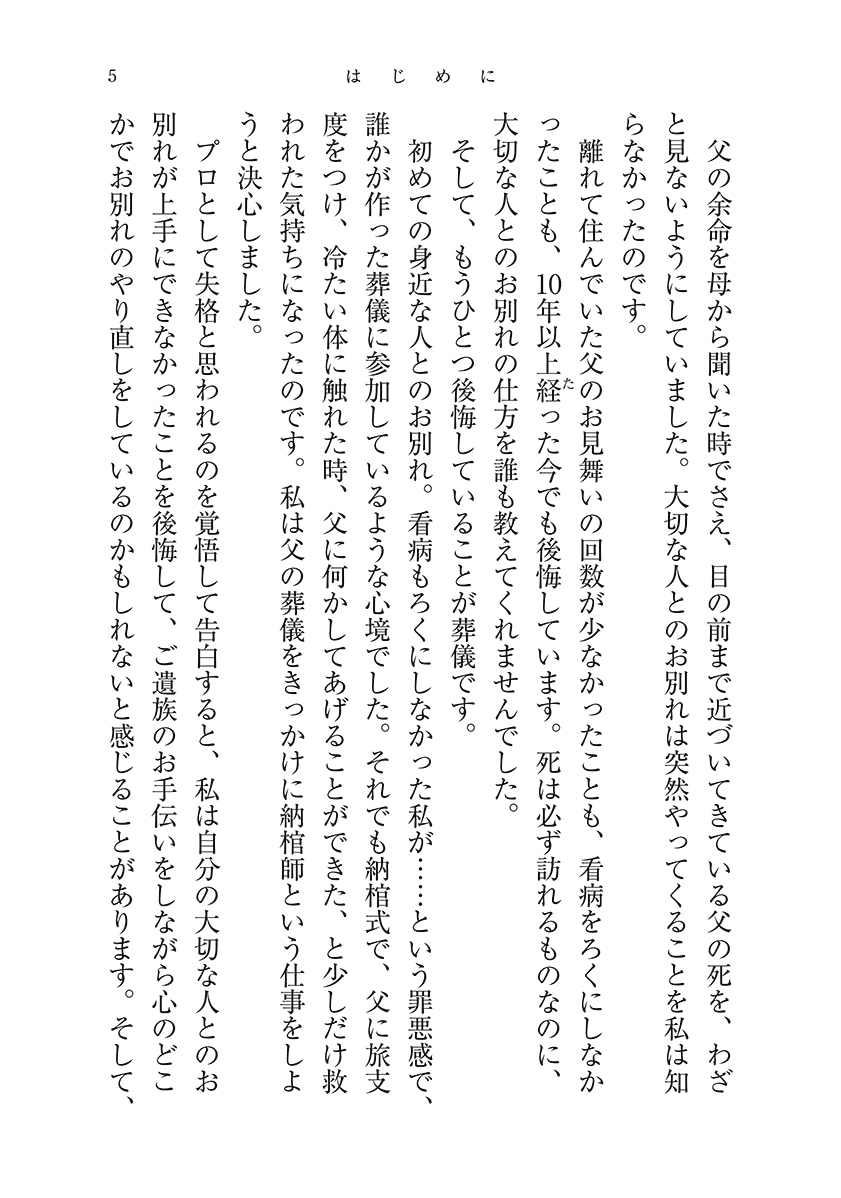 5
はじめに
父の余命を母から聞いた時でさえ、目の前まで近づいてきている父の死を、わざ
と見ないようにしていました。大切な人とのお別れは突然やってくることを私は知
らなかったのです。
離れて住んでいた父のお見舞いの回数が少なかったことも、看病をろくにしなか
ったことも、10年以上経った今でも後悔しています。死は必ず訪れるものなのに、
た
大切な人とのお別れの仕方を誰も教えてくれませんでした。
そして、もうひとつ後悔していることが葬儀です。
初めての身近な人とのお別れ。看病もろくにしなかった私が……という罪悪感で、
誰かが作った葬儀に参加しているような心境でした。それでも納棺式で、父に旅支
度をつけ、冷たい体に触れた時、父に何かしてあげることができた、と少しだけ救
われた気持ちになったのです。私は父の葬儀をきっかけに納棺師という仕事をしよ
うと決心しました。
プロとして失格と思われるのを覚悟して告白すると、私は自分の大切な人とのお
別れが上手にできなかったことを後悔して、ご遺族のお手伝いをしながら心のどこ
かでお別れのやり直しをしているのかもしれないと感じることがあります。そして、